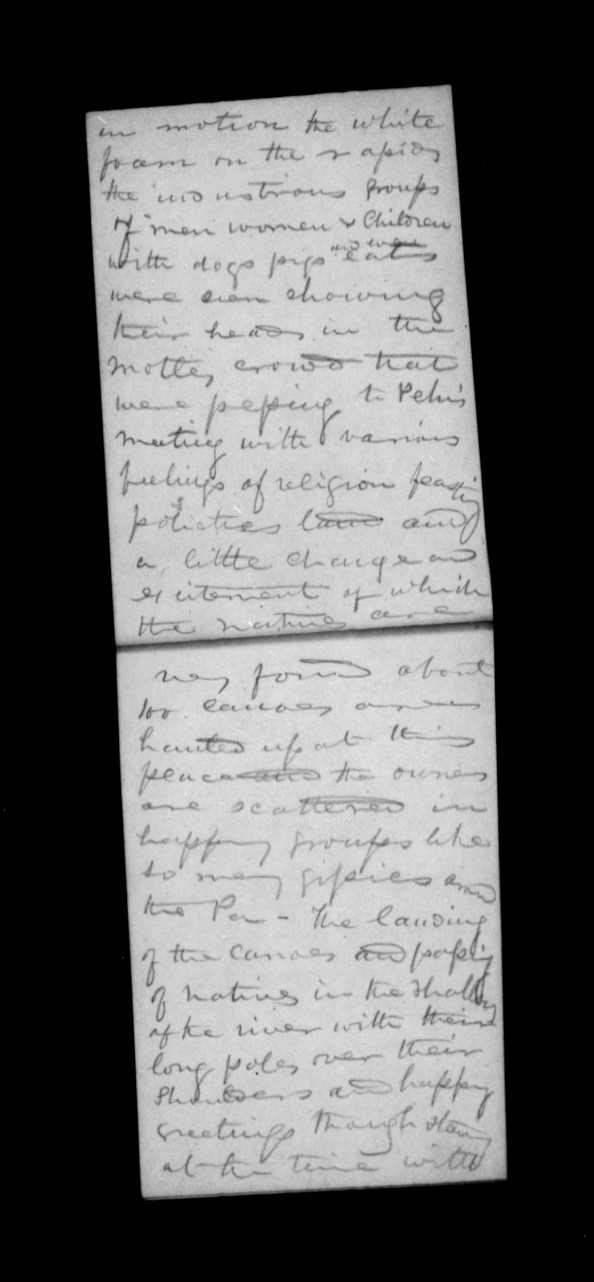 in motion the white
foam on the rapids
the industrious groups
of men women & Children
with dogs pigs and even cats
were seen showing
their heads in the
motley crowd that
were passing to Pehi's
meeting with various
feelings of religion feasting
politics land and
a little change and
excitement of which
the natives are
very fond about
100 canoes
hauled up at this
place and the owners
are scattered in
happy groups like
so many gipsies around
the Pa - The landing
of the canoes and passing
of natives in the shallows
of the river with their
long poles over their
shoulders and happy
greetings though
at the time with